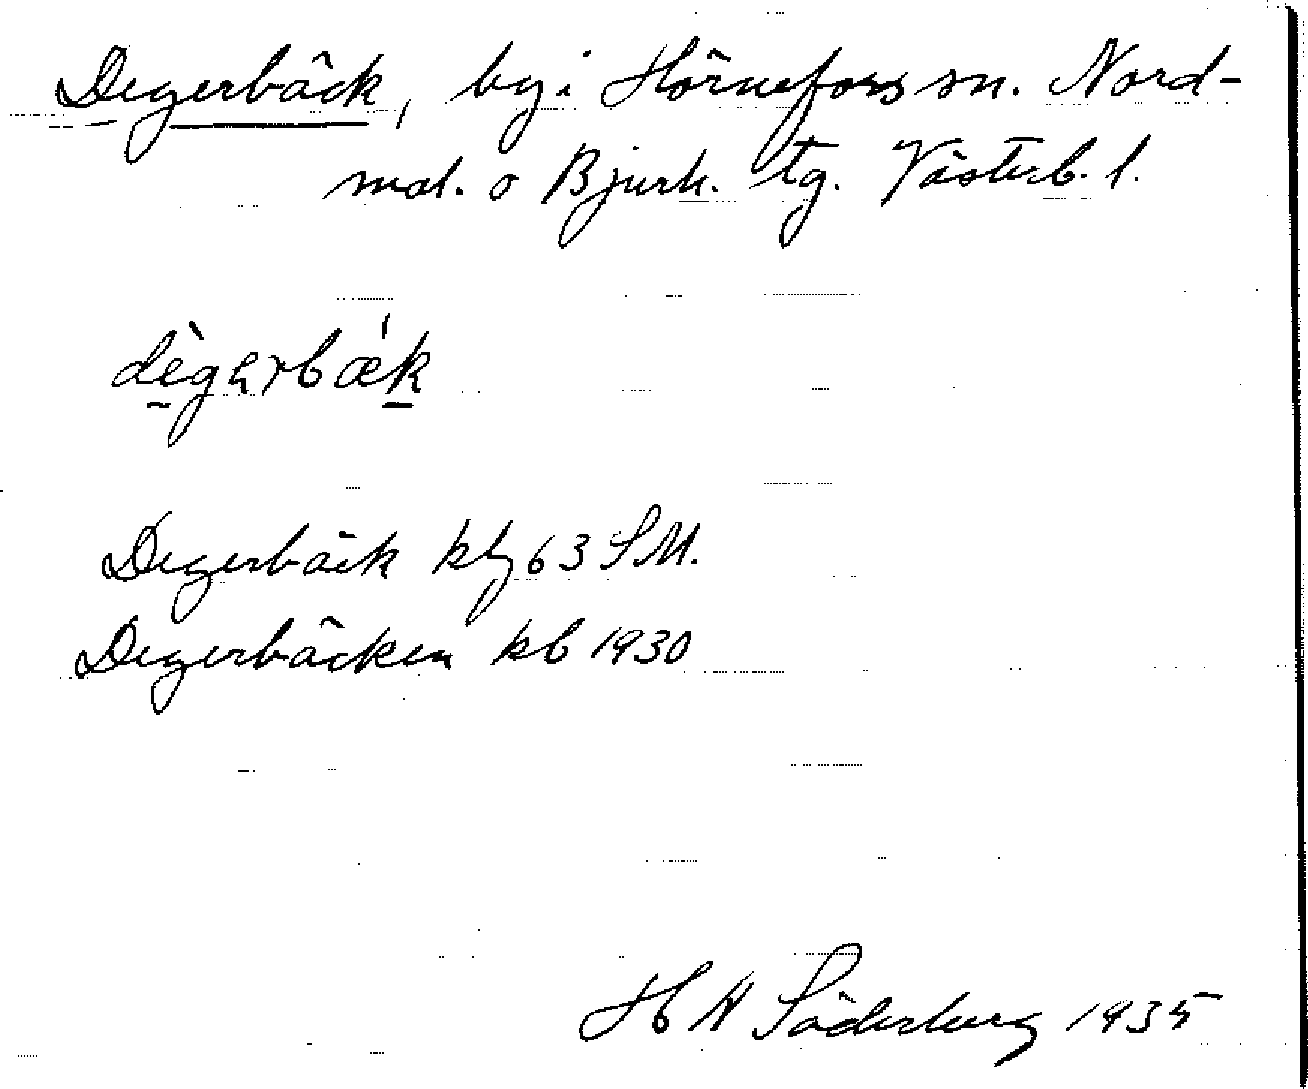 Degerbäck, by i Hörnefors sn. Nord-
mal. o Bjurh. tg. Västerb. l.
dègərbæ̀k
Degerbäck kbg 63 SM.
Degerbäcken kb 1930
H N Söderberg 1935